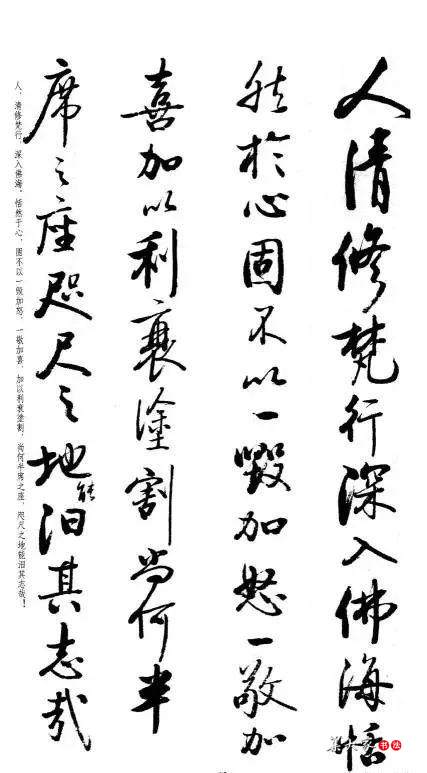 人清修梵行深入佛海恬
然於心固不以一毀加怒一敬加
喜加以利衰塗割尚何半
席之座咫尺之地能汩其志哉
人，清修梵行，深入佛海，恬然于心，固不以一毁加怒，一敬加喜，加以利衰塗割，尚何半席之座，咫尺之地能汩其志哉！
书法